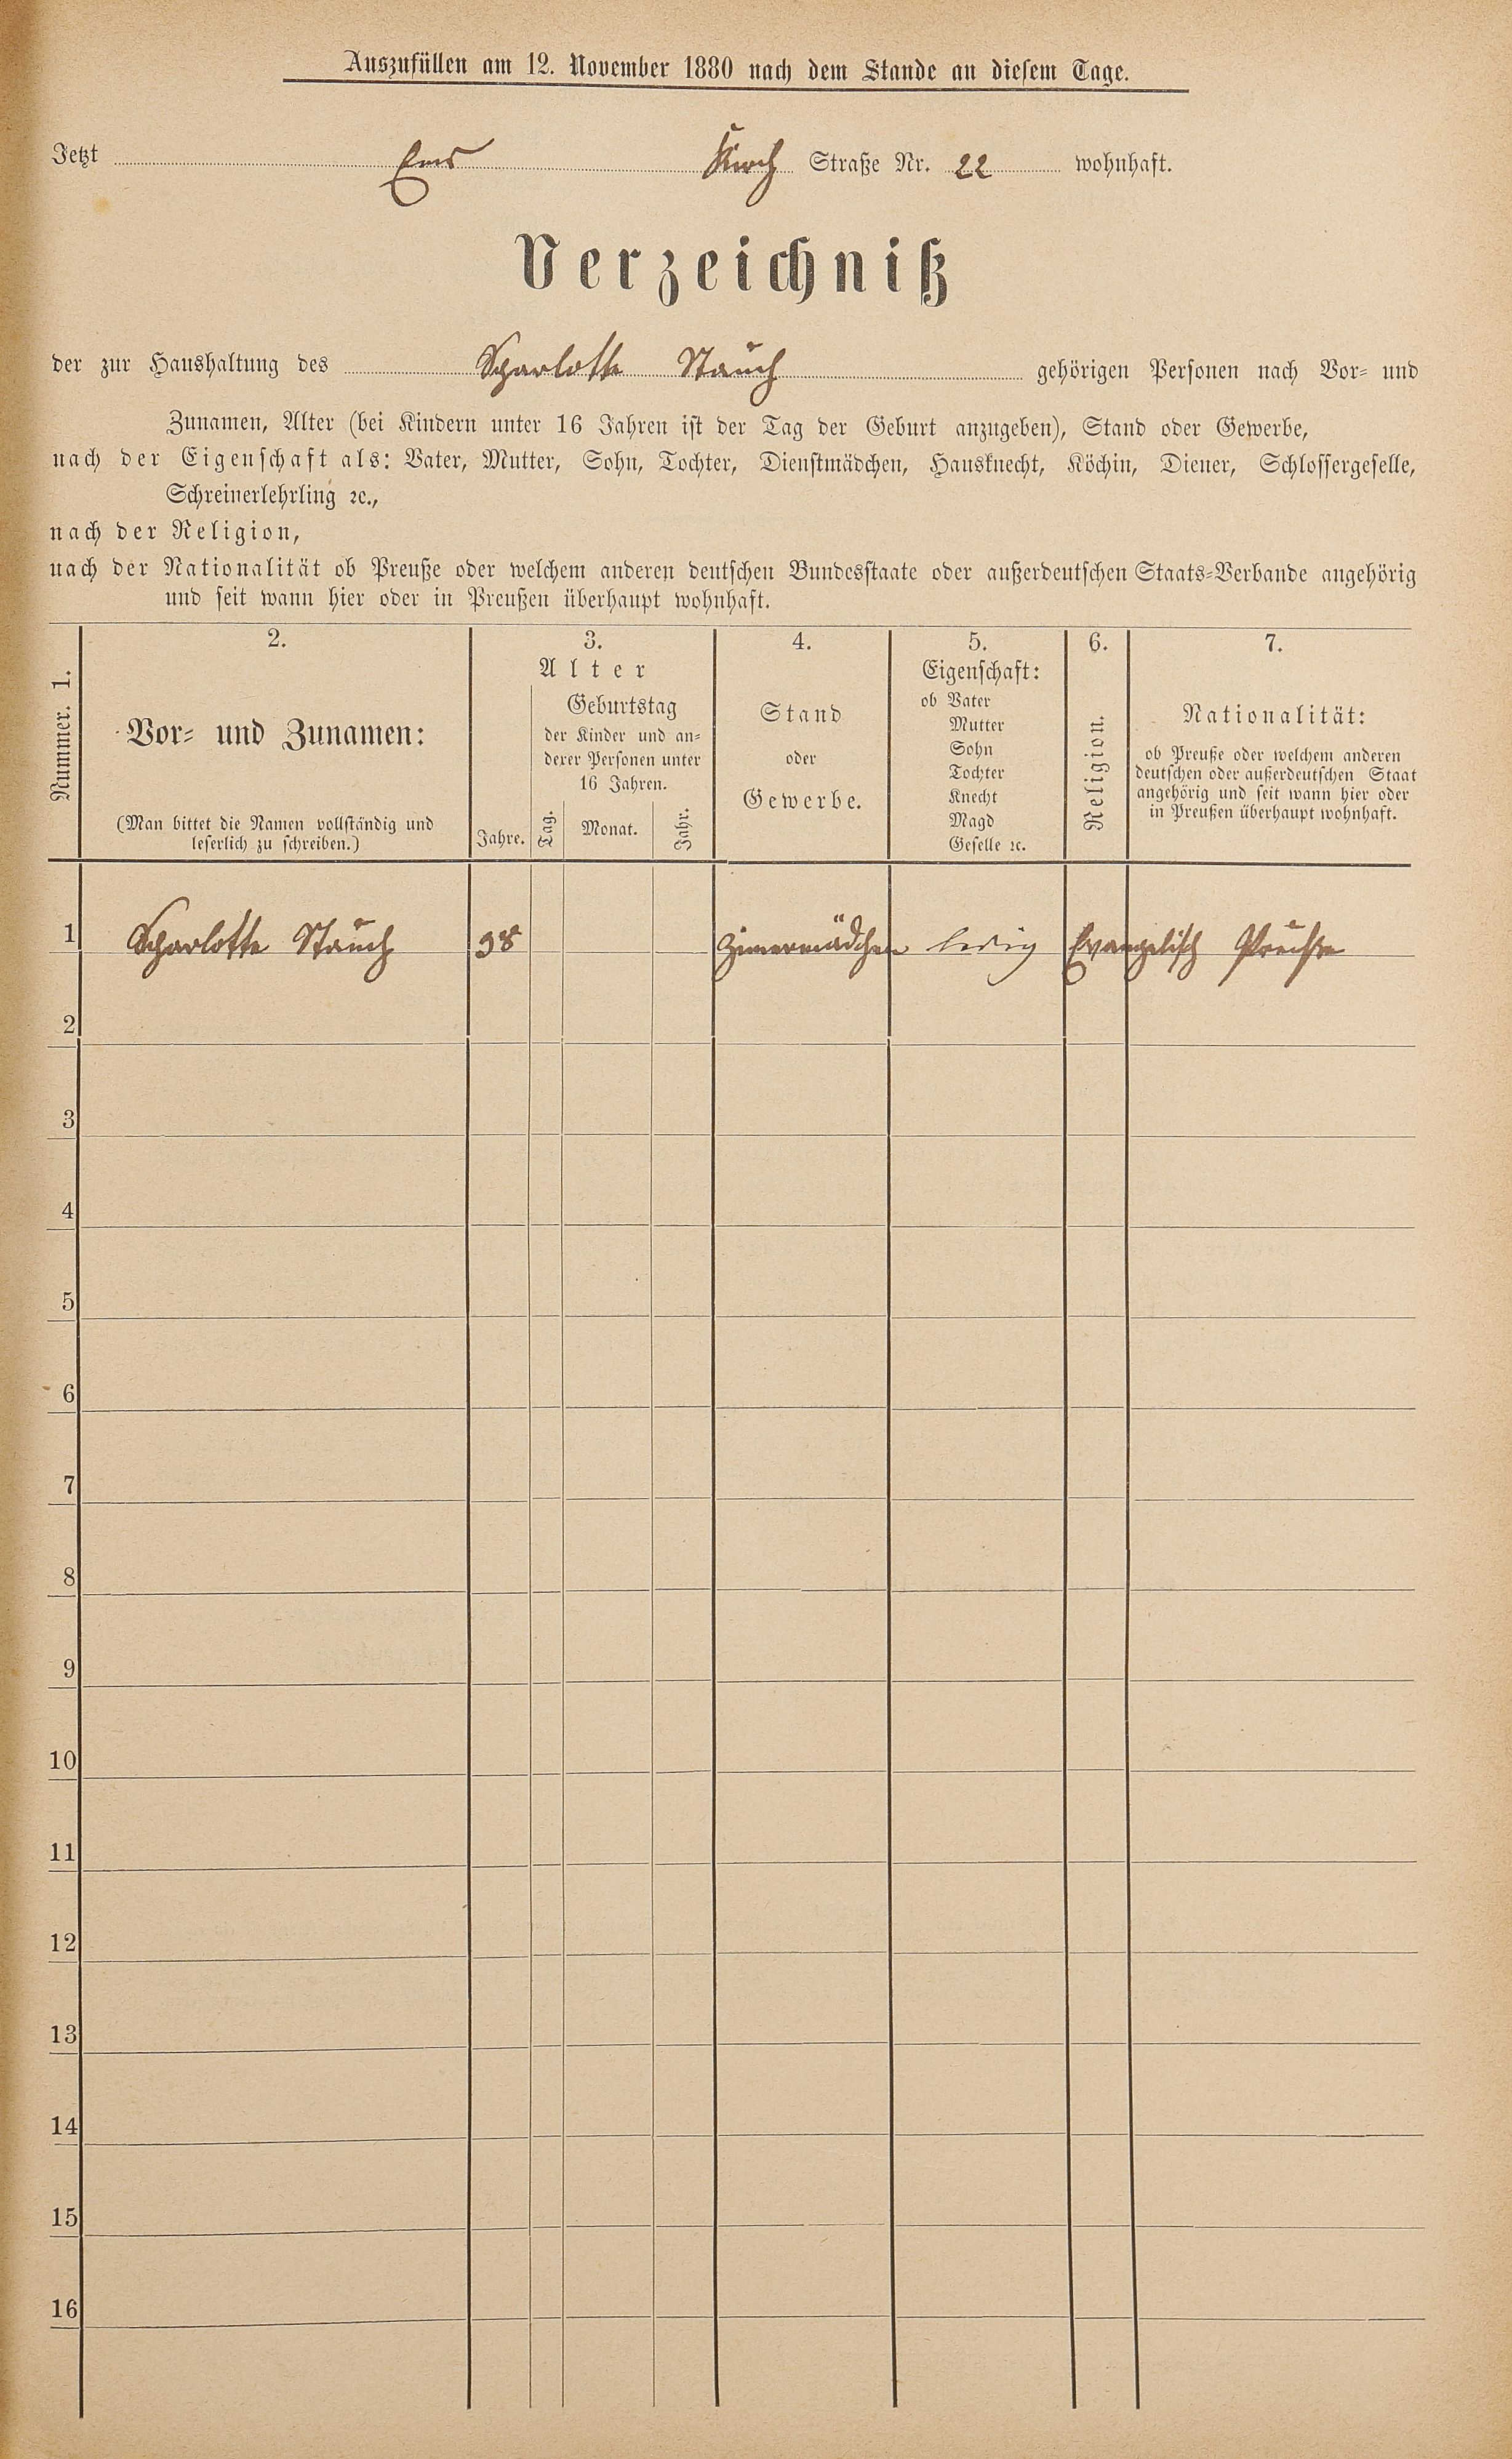 Auszufüllen am 12. November 1880 nach dem Stande an diesem Tage.
Jetzt Ems Kirch Straße Nr. 22 wohnhaft.
Verzeichniß
der zur Haushaltung des Scharlotte Stauch gehörigen Personen nach Vor- und
Zunamen, Alter (bei Kindern unter 16 Jahren ist der Tag der Geburt anzugeben), Stand oder Gewerbe,
nach der Eigenschaft als: Vater, Mutter, Sohn, Tochter, Dienstmädchen, Hausknecht, Köchin, Diener, Schlossergeselle,
Schreinerlehrling ꝛc.,
nach der Religion,
nach der Nationalität ob Preuße oder welchem anderen deutschen Bundesstaate oder außerdeutschen Staats-Verbande angehörig
und seit wann hier oder in Preußen überhaupt wohnhaft.
Nummer. 1.
2.
Vor- und Zunamen:
(Man bittet die Namen vollständig und
leserlich zu schreiben.)
3.
Alter
Jahre.
Geburtstag
der Kinder und an-
derer Personen unter
16 Jahren.
Tag.
Monat.
Jahr.
4.
Stand
oder
Gewerbe.
5.
Eigenschaft:
ob Vater
Mutter
Sohn
Tochter
Knecht
Magd
Geselle ꝛc.
6.
Religion.
7.
Nationalität:
ob Preuße oder welchem anderen
deutschen oder außerdeutschen Staat
angehörig und seit wann hier oder
in Preußen überhaupt wohnhaft.
1 Scharlotte Stauch 38 Zimermädchen ledig Evangelisch Preußen
2
3
4
5
6
7
8
9
10
11
12
13
14
15
16